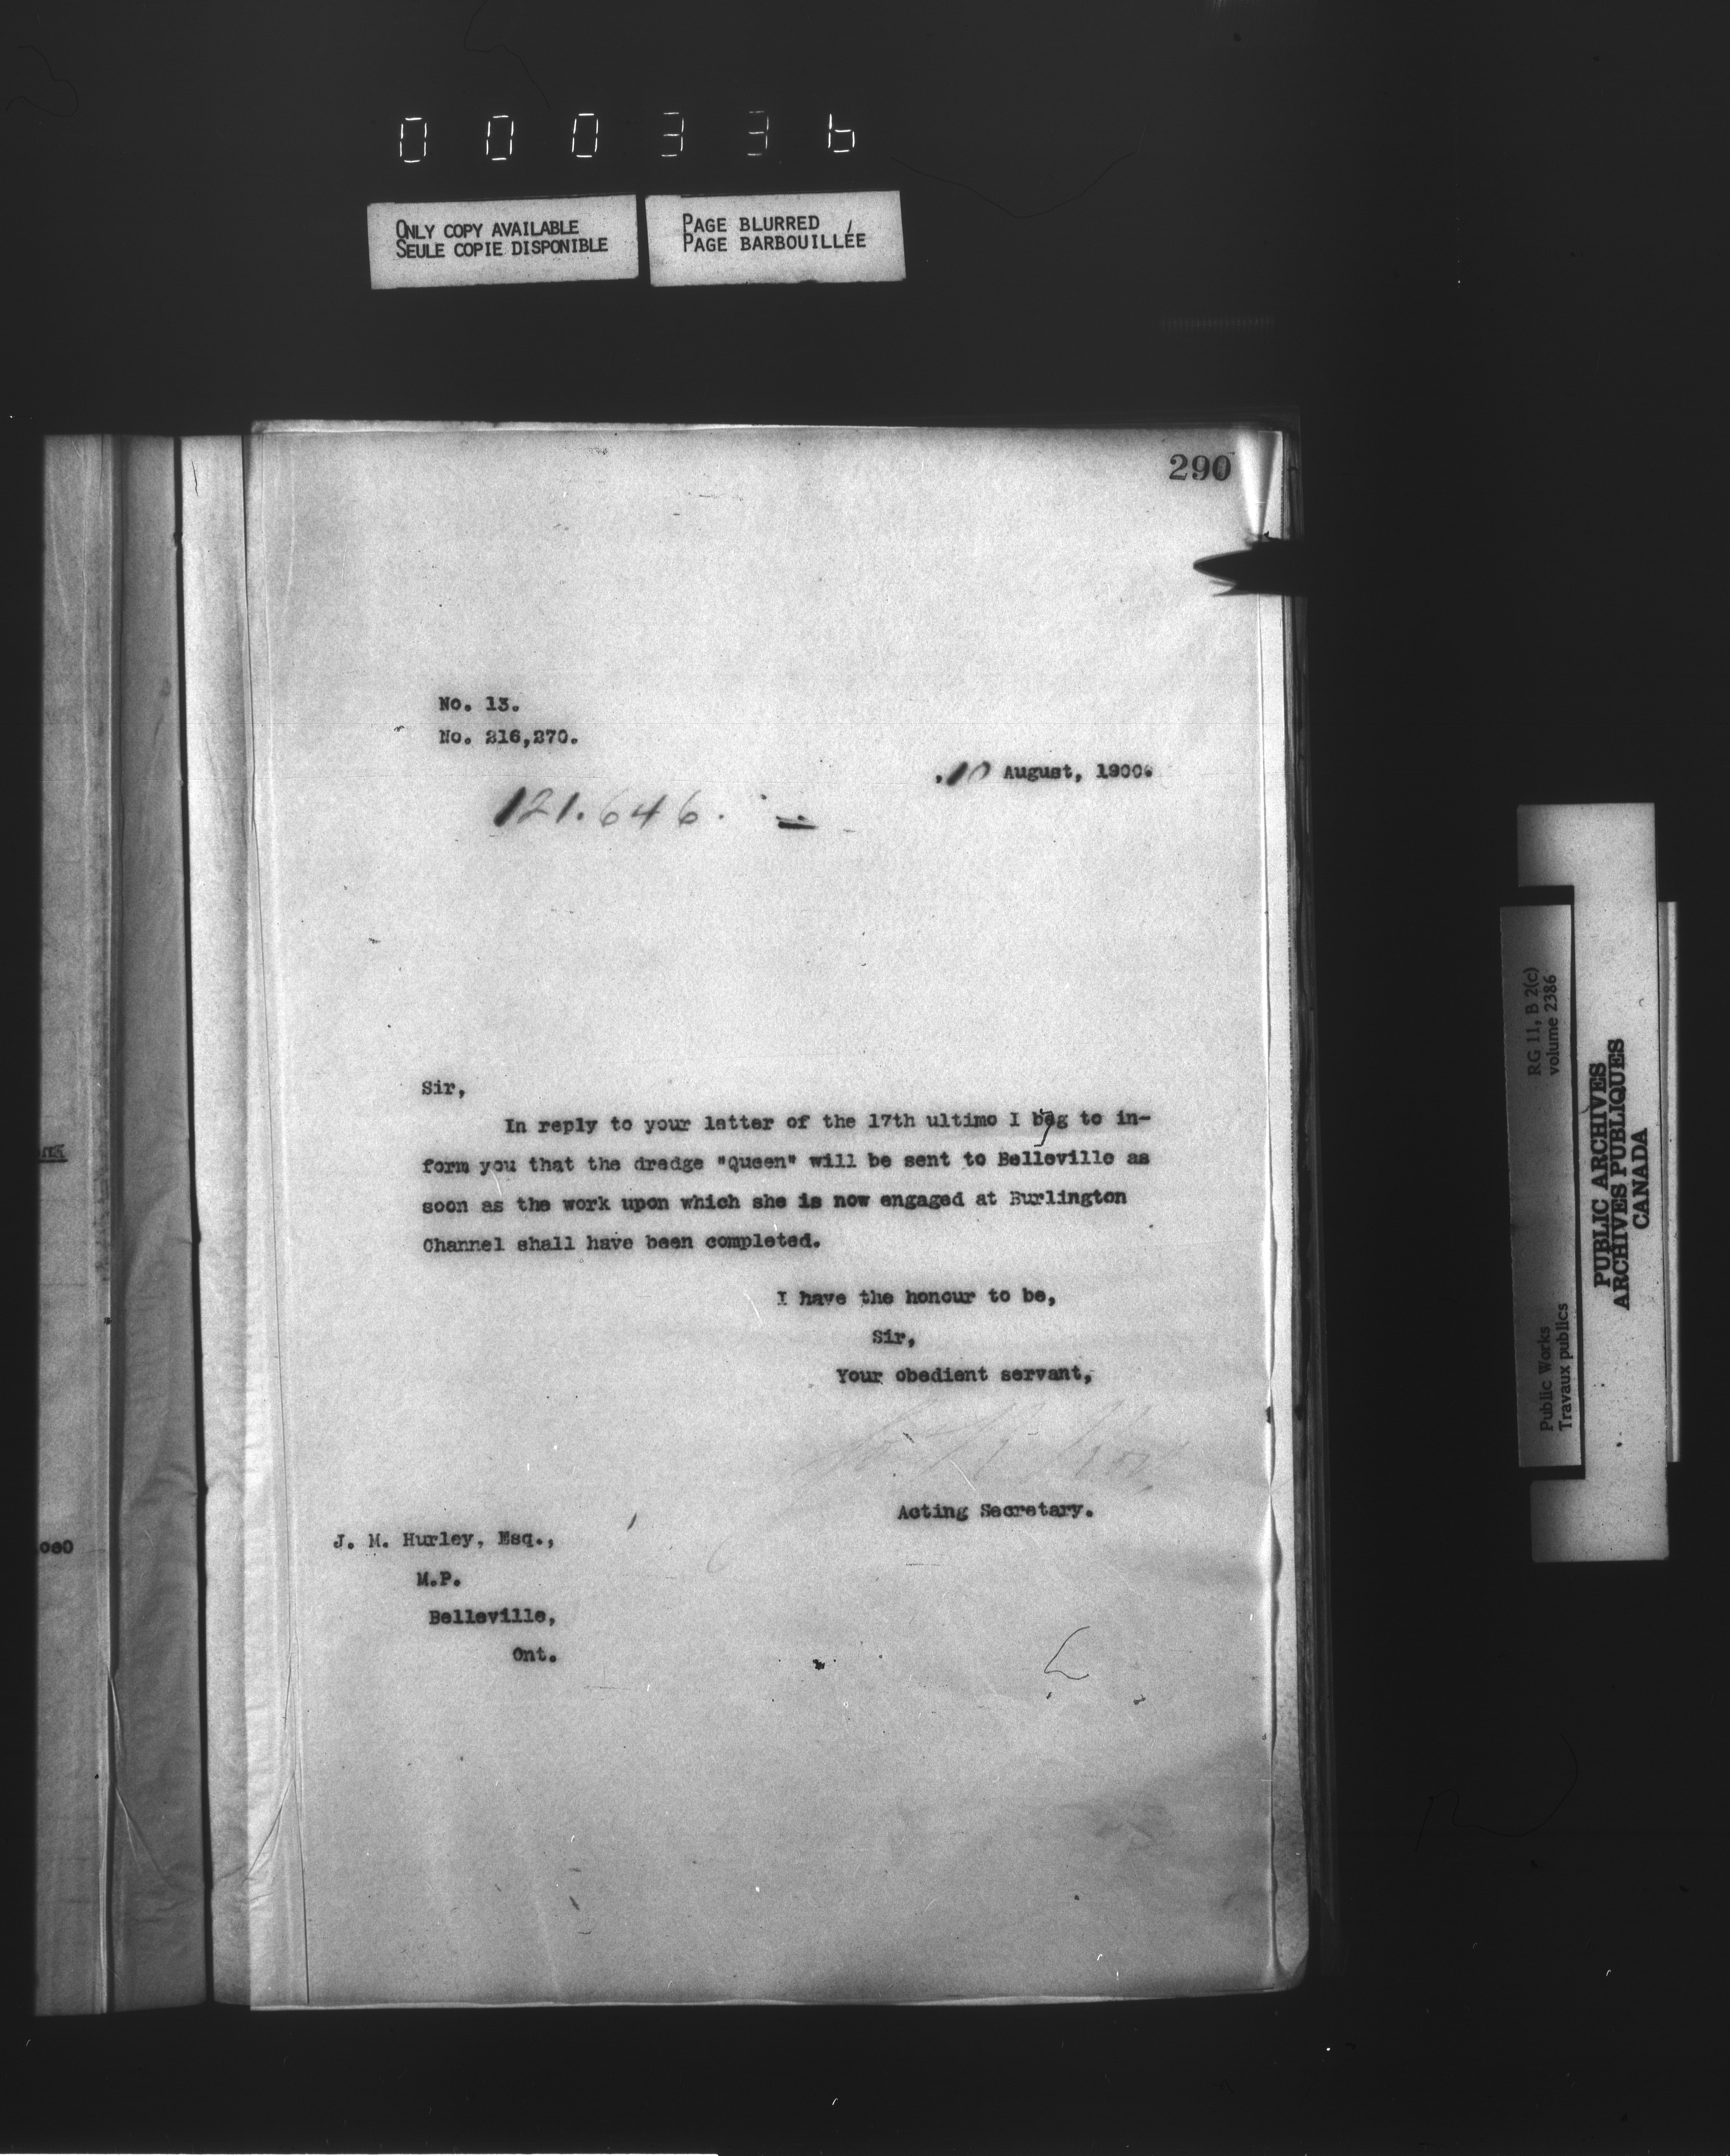 000336
ONLY COPY AVAILABLE
SEULE COPIE DISPONIBLE
PAGE BLURRED
PAGE BARBOUILLÉE
290
No. 13.
No. 216,270.
10 August, 1900.
121.646.
Sir,
In reply to your letter of the 17th ultimo I beg to in-
form you that the dredge "Queen" will be sent to Belleville as
soon as the work upon which she is now engaged at Burlington
Channel shall have been completed.
I have the honour to be,
Sir,
Your obedient servant,
Acting Secretary.
J. M. Hurley, Esq.,
M.P.
Belleville,
Ont.
RG 11, B 2(c)
volume 2386
Public Works
Travaux publics
PUBLIC ARCHIVES
ARCHIVES PUBLIQUES
CANADA